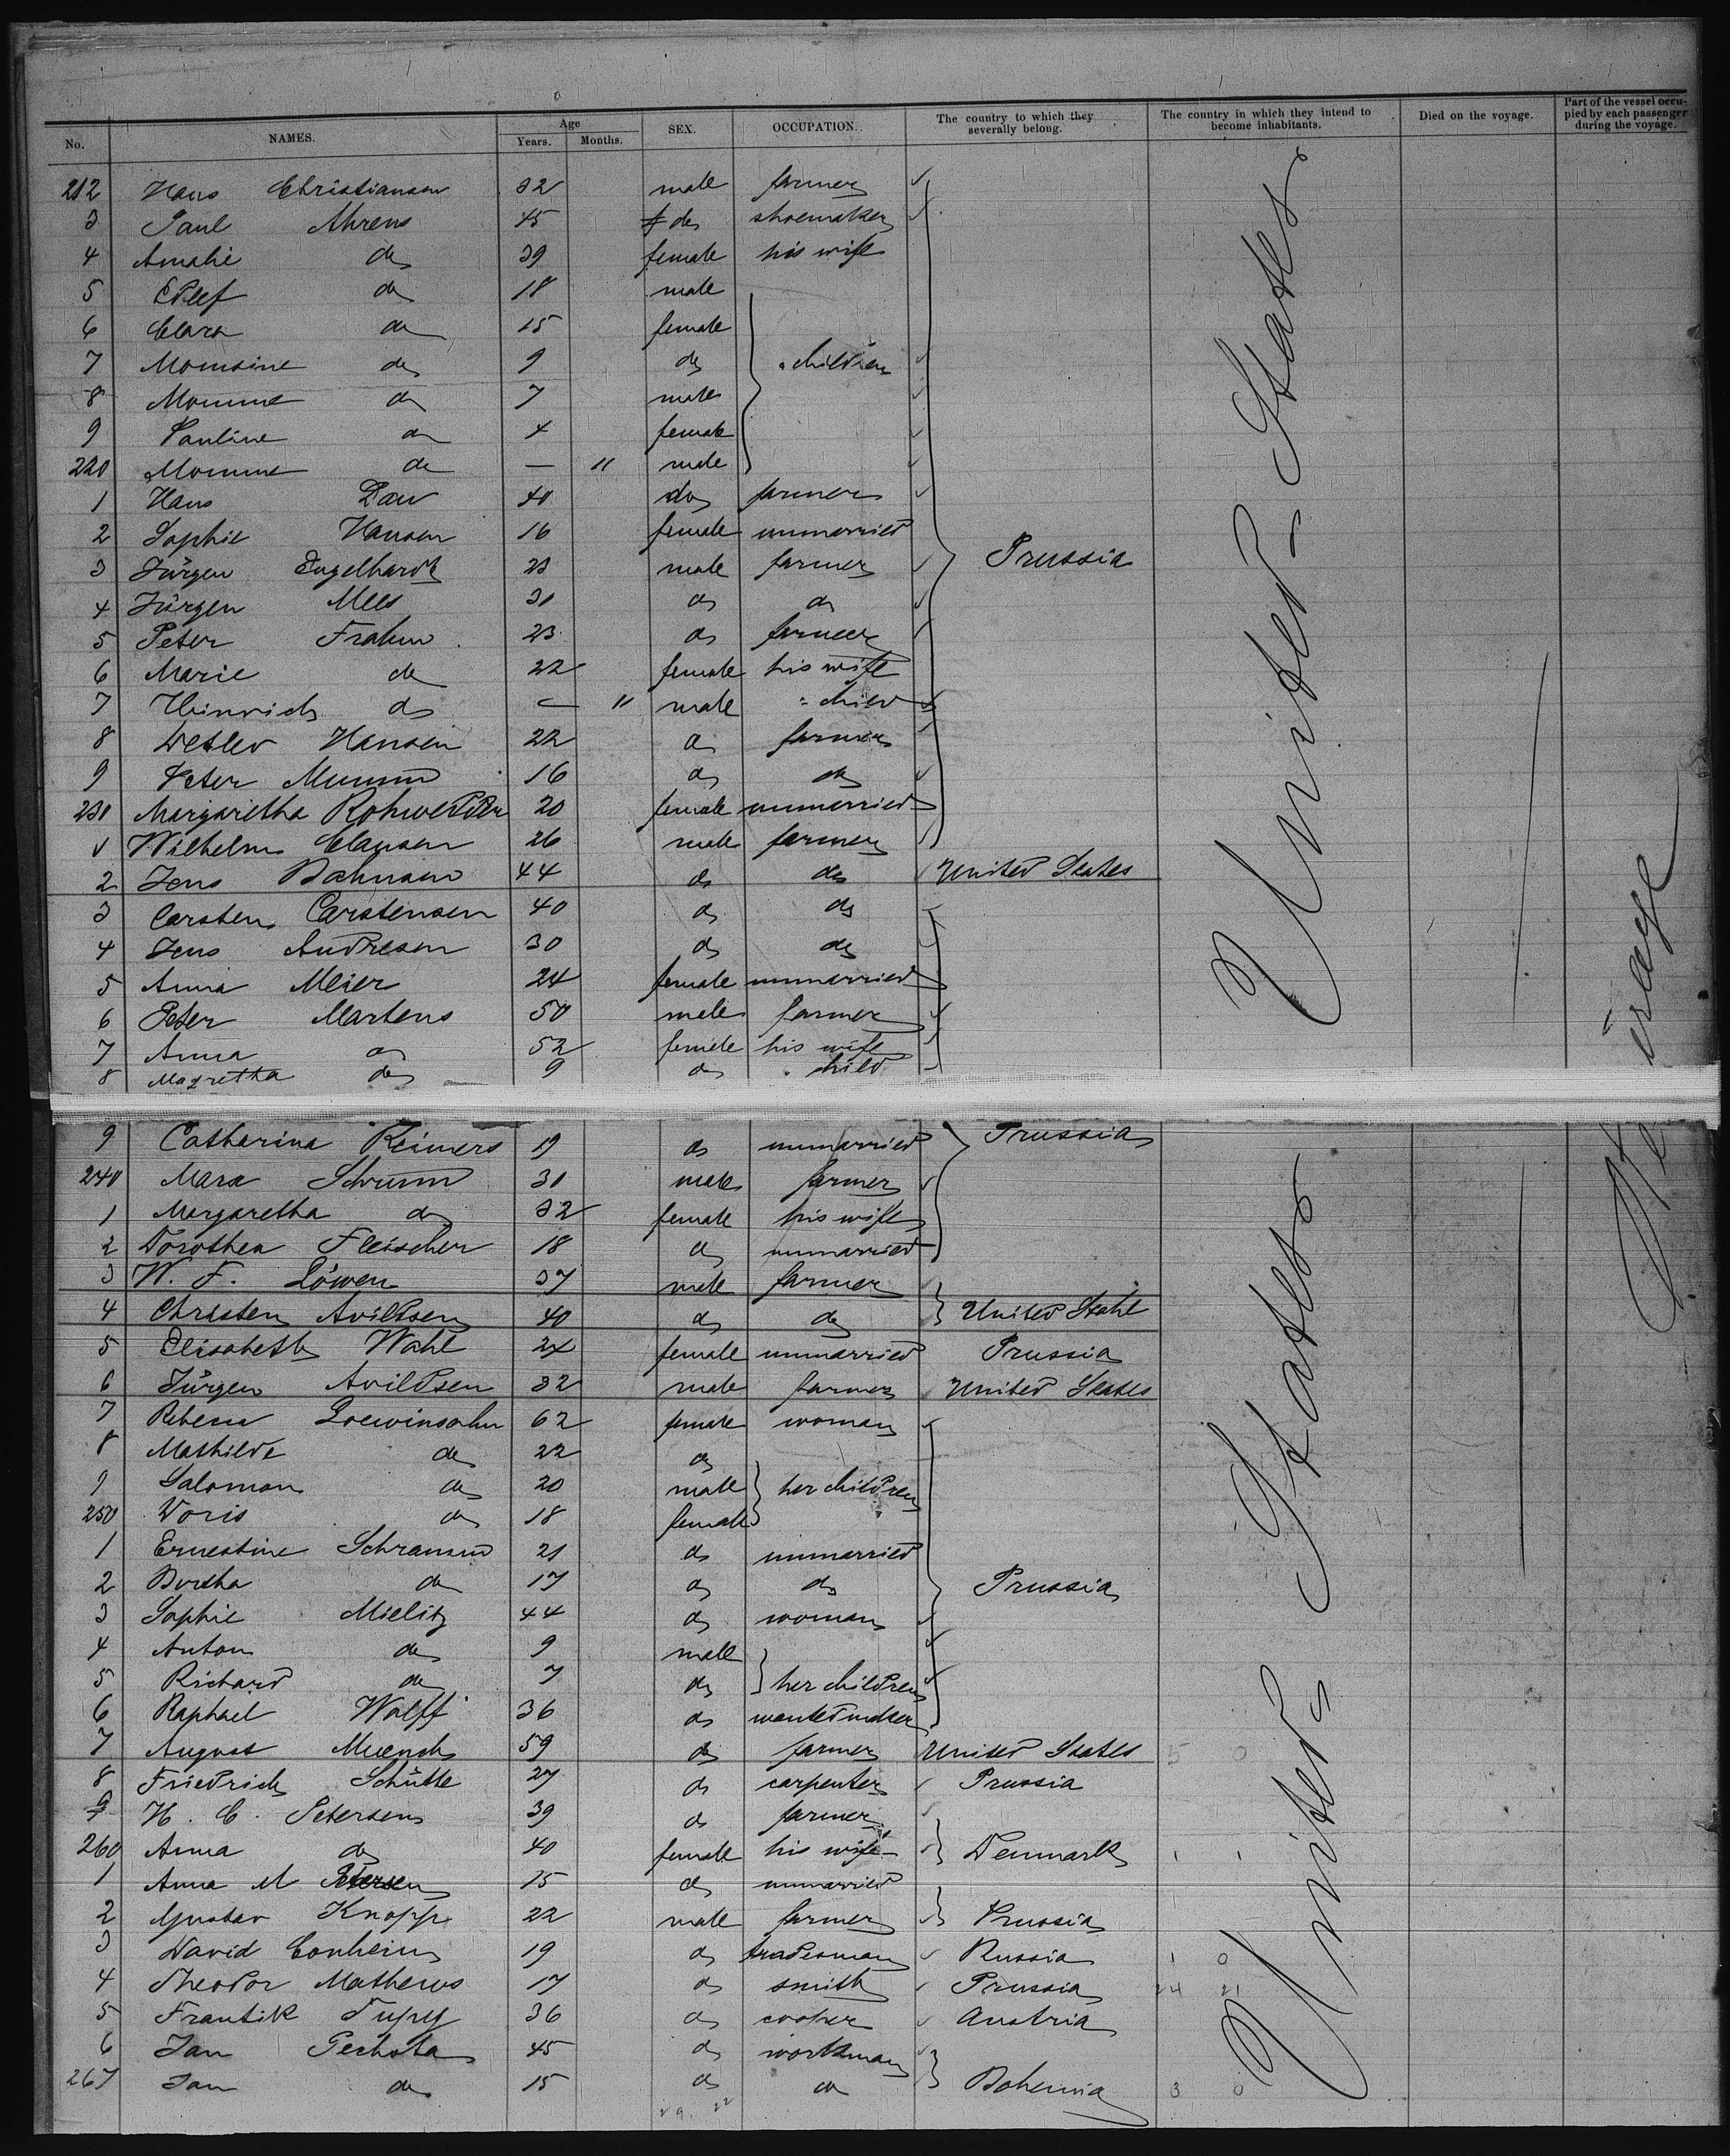 No. NAMES. Age Years. Months. SEX. OCCUPATION. The country to which they severally belong. The country in which they intend to become inhabitants. Died on the voyage. Part of the vessel occupied by each passenger during the voyage.
212 Hans Christiansen 32 male farmer
3 Paul Ahrens 45 do shoemaker
4 Amalie do 39 female his wife
5 Detlef do 18 male
6 Clara do 15 female
7 Momsine do 9 do " children
8 Momme do 7 male
9 Pauline do 4 female
220 Momme do — 11 male
1 Hans Dau 40 do farmer
2 Sophie Hansen 16 female unmarried
3 Jürgen Engelhardt 23 male farmer Prussia
4 Jürgen Mees 31 do do
5 Peter Frahm 23 do farmer
6 Marie do 22 female his wife
7 Heinrich do — 11 male " child
8 Detlev Hansen 22 do farmer
9 Peter Mumm 16 do do
230 Margaretha Rohwedder 20 female unmarried
1 Wilhelm Clausen 26 male farmer
2 Jens Bahnsen 44 do do United States
3 Carsten Carstensen 40 do do
4 Jens Andresen 30 do do
5 Anna Meier 24 female unmarried
6 Peter Martens 50 male farmer
7 Anna do 52 female his wife
8 Magretha do 9 do " child
United States
9 Catharina Reimers 19 do unmarried Prussia
240 Marx Schrum 31 male farmer
1 Margaretha do 32 female his wife
2 Dorothea Fleischer 18 do unmarried
3 W. F. Löwen 37 male farmer
4 Christen Avildsen 40 do do United State
5 Elisabeth Wahl 24 female unmarried Prussia
6 Jürgen Avildsen 32 male farmer United States
7 Rebecca Loewinsohn 62 female woman
8 Mathilde do 22 do
9 Salomon do 20 male her children
250 Doris do 18 female
1 Ernestine Schramm 21 do unmarried
2 Bertha do 17 do do Prussia
3 Sophie Mielitz 44 do woman
4 Anton do 9 male
5 Richard do 7 do her children
6 Raphael Wolff 36 do
7 August Muench 59 do farmer United States 5 0
8 Friedrich Schütte 27 do carpenter Prussia
9 H. C. Petersen 39 do farmer
260 Anna do 40 female his wife Denmark 1 1
1 Anna M Petersen 15 do unmarried
2 Gustav Knopp 22 male farmer Prussia
3 David Conheim 19 do tradesman Russia 1 0
4 Theodor Mathews 17 do smith Prussia 24 21
5 Frantik Tupy 36 do cooper Austria
6 Jan Pechota 45 do workman
267 Jan do 15 do do Bohemia 3 0
United States
Steerage